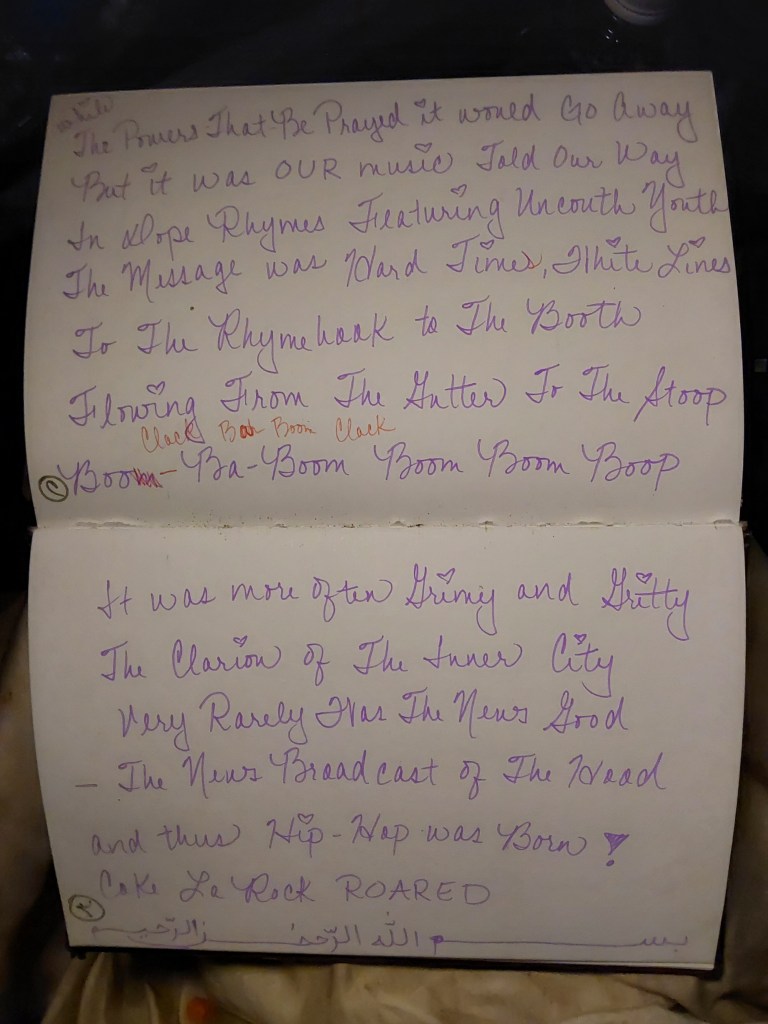 while
The Powers That Be Prayed it would Go Away
But it was OUR music Told Our Way
In Dope Rhymes Featuring Uncouth Youth
The Message was Hard Times, White Lines
To The Rhymebook to The Booth
Flowing From The Gutter To The Stoop
Clack Bah Boom Clack
② Boom-Ba-Boom Boom Boom Boop
It was more often Grimy and Gritty
The Clarion of The Inner City
Very Rarely Was The News Good
— The News Broadcast of The Hood
and thus Hip-Hop was Born!
Coke La Rock ROARED
بسم الله الرّحمٰن الرّحيم